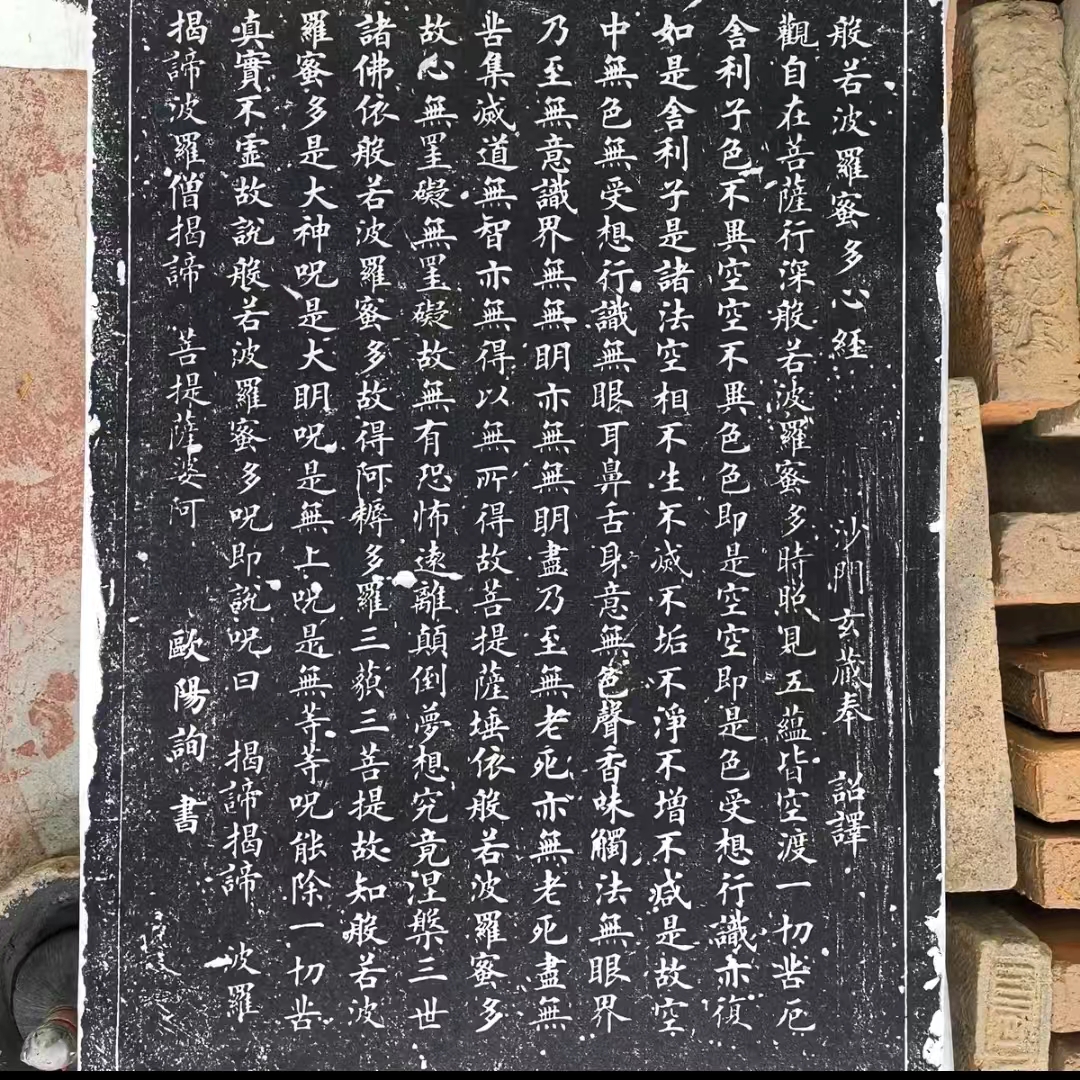 般若波羅蜜多心經 沙門玄藏奉 詔譯
觀自在菩薩行深般若波羅蜜多時照見五蘊皆空渡一切苦厄
舍利子色不異空空不異色色即是空空即是色受想行識亦復
如是舍利子是諸法空相不生不滅不垢不淨不增不減是故空
中無色無受想行識無眼耳鼻舌身意無色聲香味觸法無眼界
乃至無意識界無無明亦無無明盡乃至無老死亦無老死盡無
苦集滅道無智亦無得以無所得故菩提薩埵依般若波羅蜜多
故心無罣礙無罣礙故無有恐怖遠離顛倒夢想究竟涅槃三世
諸佛依般若波羅蜜多故得阿耨多羅三藐三菩提故知般若波
羅蜜多是大神呪是大明呪是無上呪是無等等呪能除一切苦
真實不虛故說般若波羅蜜多呪即說呪曰 揭諦揭諦 波羅
揭諦波羅僧揭諦 菩提薩婆河 歐陽詢書